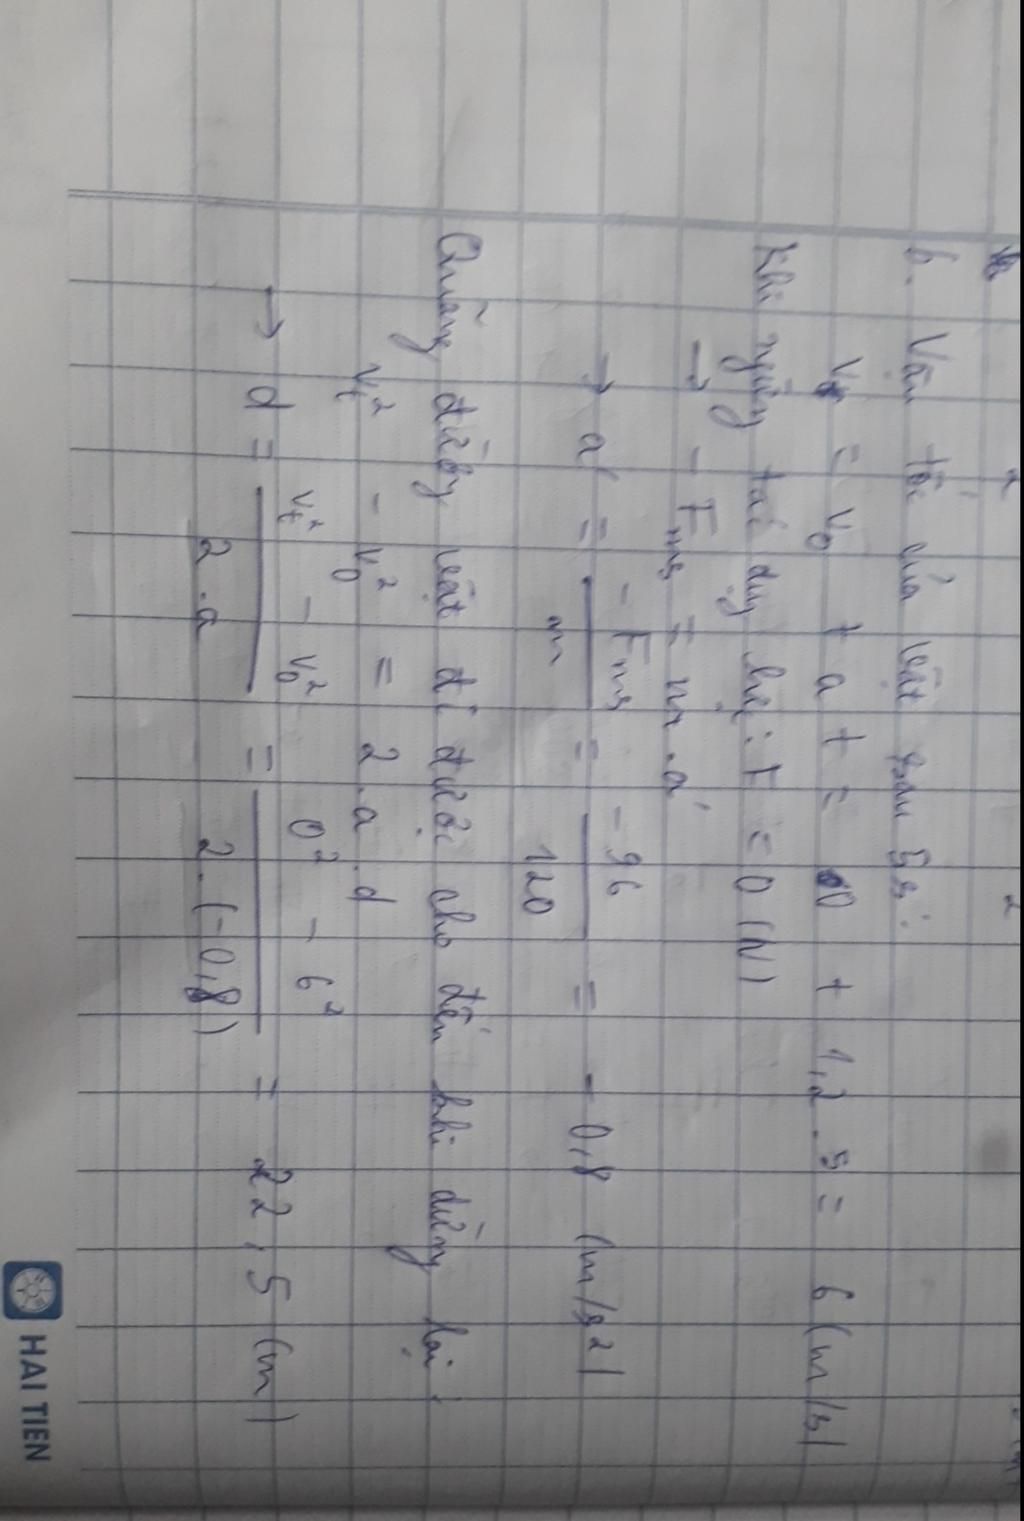 b. Vận tốc của vật sau 5s:
v = v₀ + at = 0 + 1,2 . 5 = 6 (m/s)
Khi ngừng tác dụng lực: F = 0 (N)
→ - Fms = m . a'
→ a' = - Fms / m = - 96 / 120 = - 0,8 (m/s²)
Quãng đường vật đi được cho đến khi dừng lại:
vt² - v₀² = 2 . a . d
→ d = vt² - v₀² / 2 . a = 0² - 6² / 2 . (-0,8) = 22,5 (m)
HAI TIEN